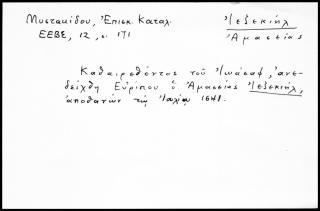 Μυστακίδου, Ἐπισκ. Καταλ.
ΕΕΒΣ, 12, σ. 171
Ἰεζεκιήλ
Ἀμασείας
Καθαιρεθέντος τοῦ Ἰωάσαφ, ἀνε-
δείχθη Εὐρίπου ὁ Ἀμασείας Ἰεζεκιήλ,
ἀποθανὼν τῇ 1641.